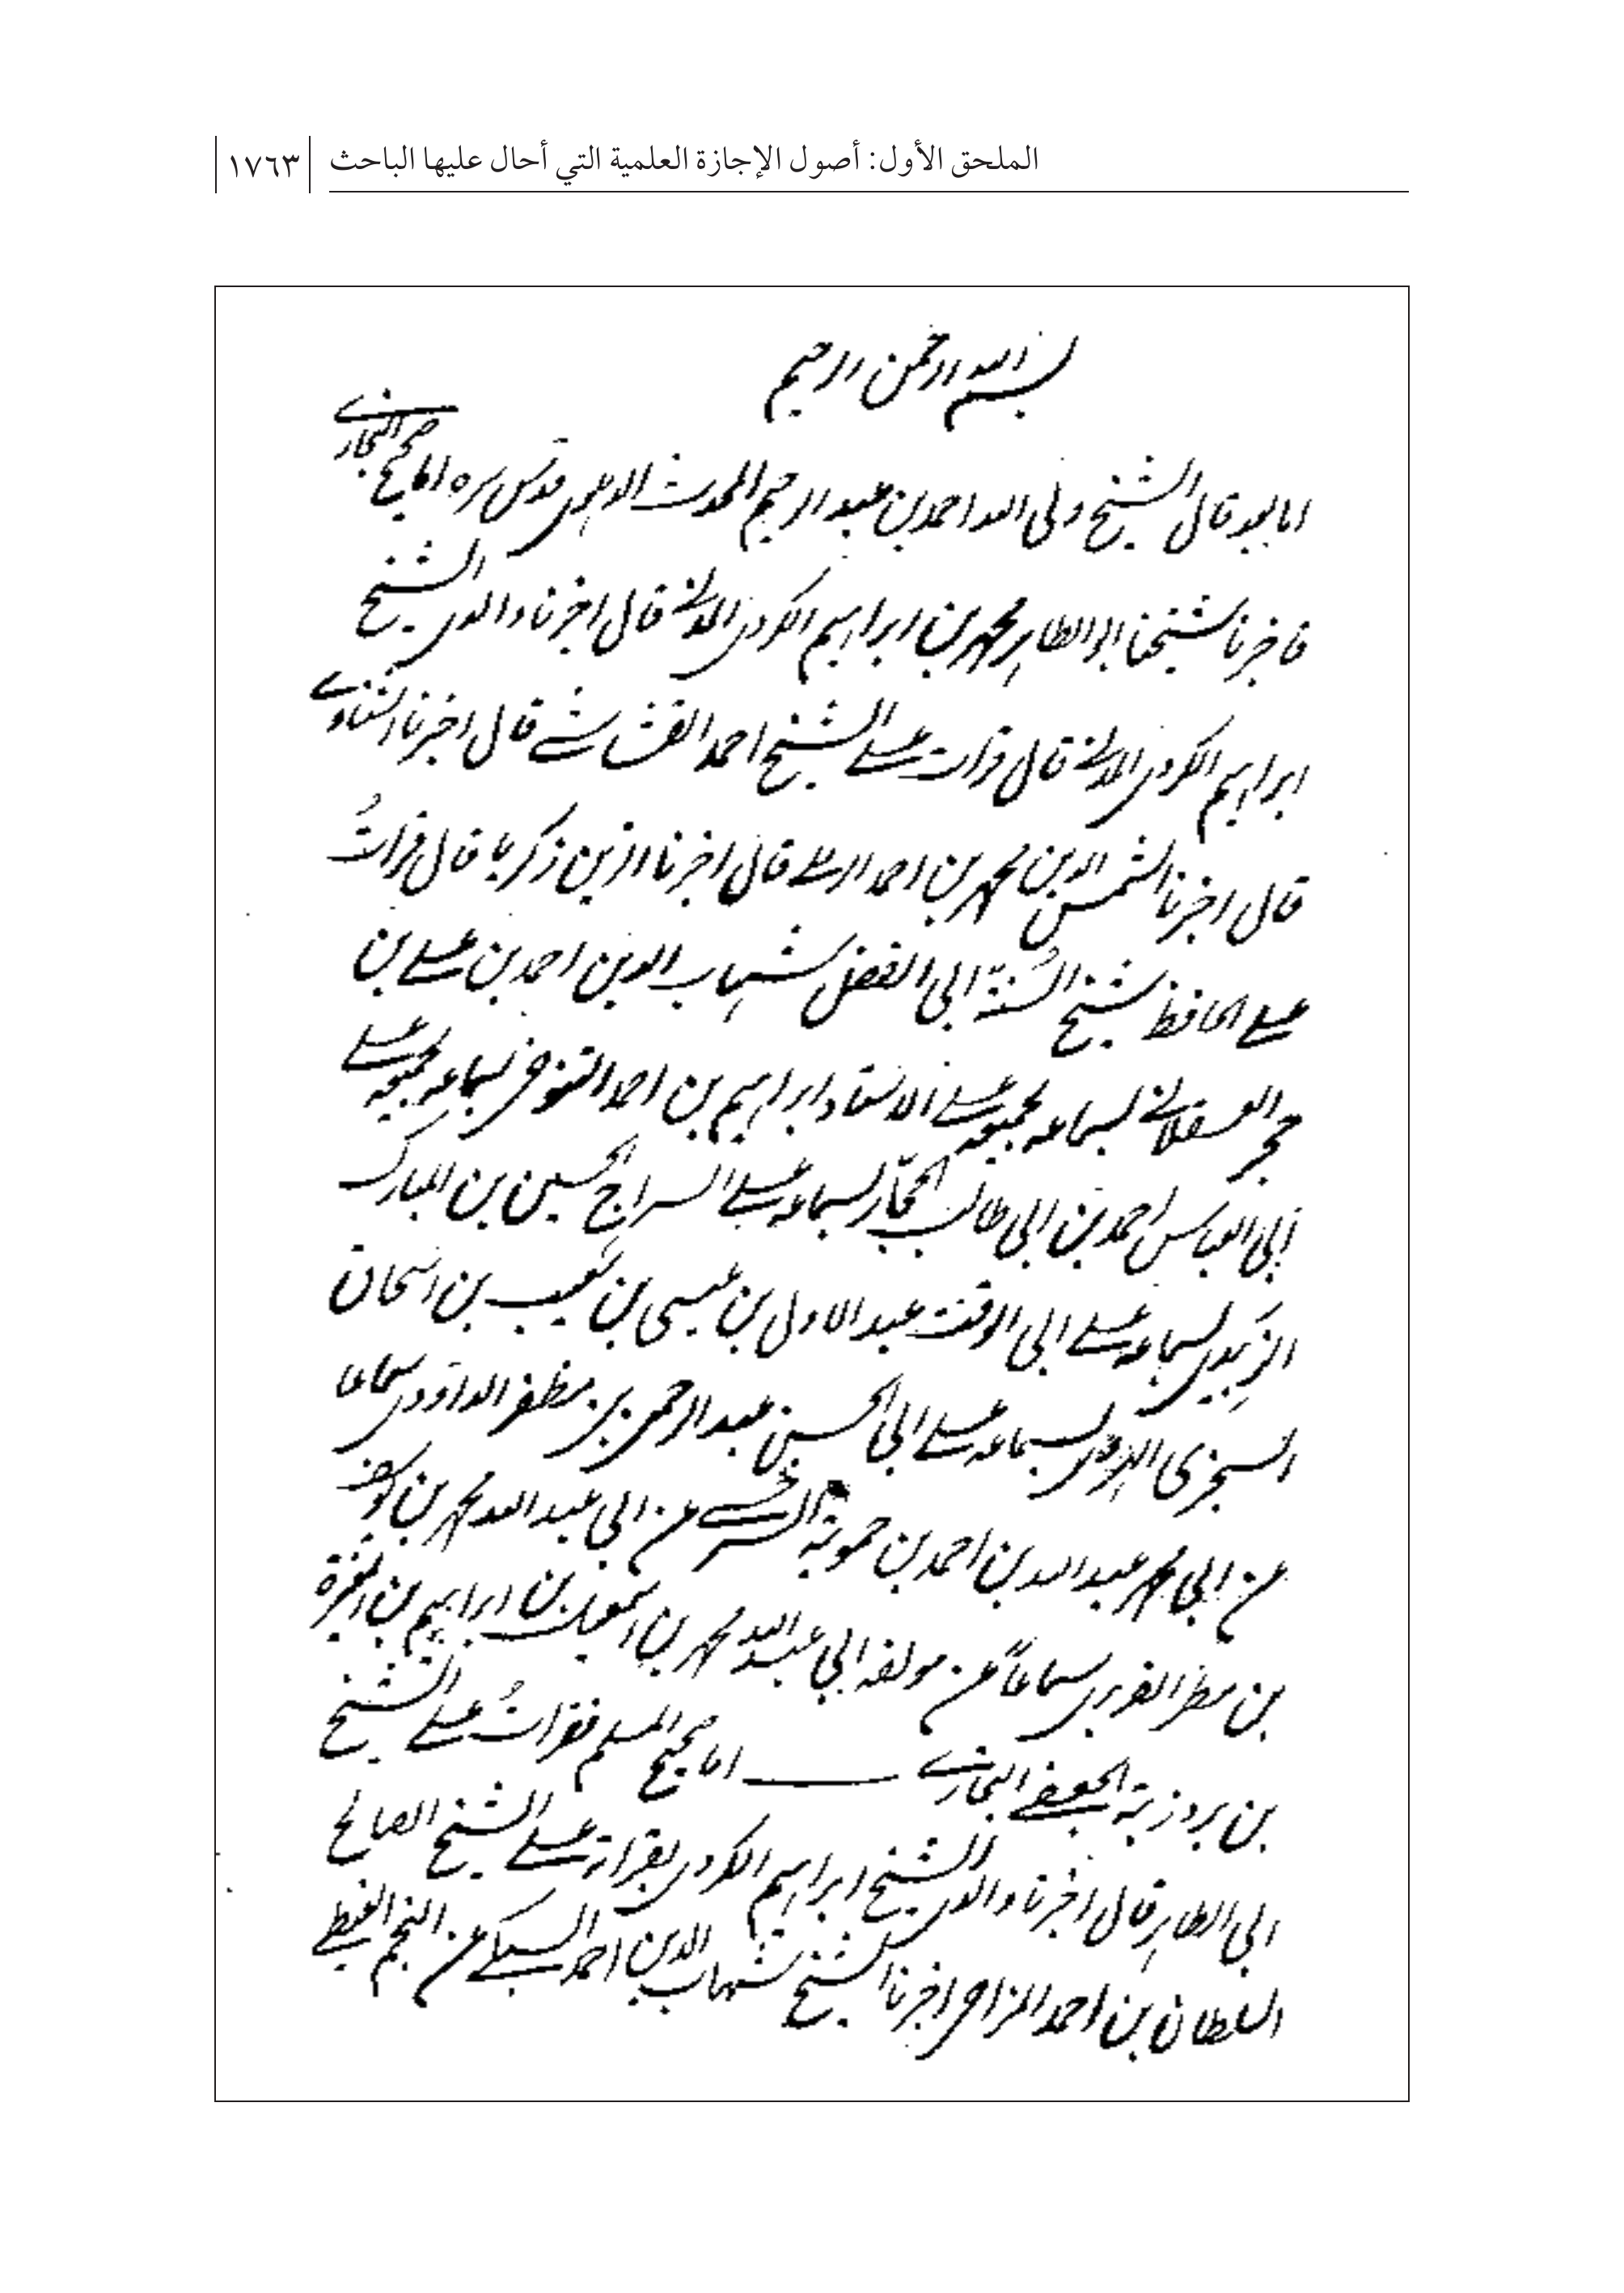 الملحق الأول: أصول الإجازة العلمية التي أحال عليها الباحث ١٧٦٣
بسم الله الرحمن الرحيم
اما بعد قال الشيخ ولى الله احمد بن عبد الرحيم المحدث الدهلوى قدس سره اما صحيح البخارى
فاخبرنا شيخنا ابو الطاهر محمد بن ابراهيم الكردى المدنى قال اخبرنا والدى الشيخ
ابراهيم الكردى المدنى قال قرات على الشيخ احمد القشاشى قال اخبرنا الشناوى
قال اخبرنا الشمس الدين محمد بن احمد الرملى قال اخبرنا الزين زكريا قال قراتُ
على الحافظ شيخ السُنّة ابى الفضل شهاب الدين احمد بن على بن
حجر العسقلانى بسماعه لجميعه على الاستاد ابراهيم بن احمد التنوخى بسماعه لجميعه على
ابى العباس احمد بن ابى طالب الحجّار بسماعه على السراج الحسين بن المبارك
الزَبِيدى بسماعه على ابى الوقت عبد الاول بن عيسى بن شعيب بن اسحاق
السجزى الهروى بسماعه على ابى الحسن عبد الرحمن بن مظفر الداودى سماعا
عن ابى محمد عبد الله بن احمد بن حمويه السرخسى عن ابى عبد الله محمد بن يوسف
بن مطر الفربرى سماعاً عن مولفه ابى عبد الله محمد بن اسمعيل بن ابراهيم بن المغيرة
بن بردزبه الجعفى البخارى اما صحيح المسلم فقراتُ على الشيخ
ابى الطاهر قال اخبرنا والدى الشيخ ابراهيم الكردى بقراته على الشيخ الصالح
السلطان بن احمد المزاحى اخبرنا الشيخ شهاب الدين احمد السبكى عن النجم الغيطى